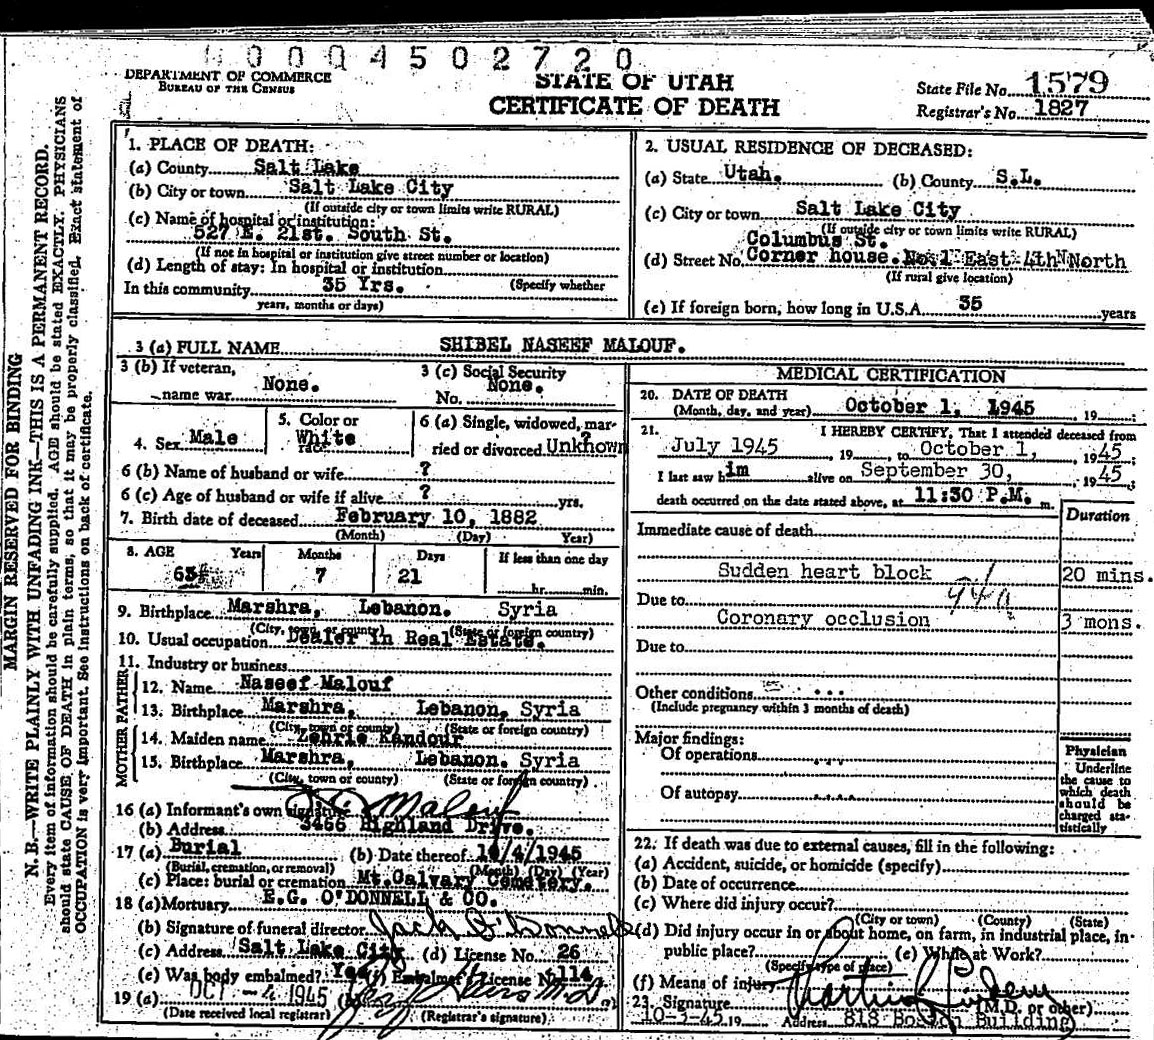 0004502720
DEPARTMENT OF COMMERCE
BUREAU OF THE CENSUS
STATE OF UTAH
CERTIFICATE OF DEATH
State File No. 1579
Registrar's No. 1827
MARGIN RESERVED FOR BINDING
N. B.—WRITE PLAINLY WITH UNFADING INK—THIS IS A PERMANENT RECORD.
Every item of information should be carefully supplied. AGE should be stated EXACTLY. PHYSICIANS
should state CAUSE OF DEATH in plain terms, so that it may be properly classified. Exact statement of
OCCUPATION is very important. See instructions on back of certificate.
1. PLACE OF DEATH:
(a) County Salt Lake
(b) City or town Salt Lake City
(If outside city or town limits write RURAL)
(c) Name of hospital or institution:
527 E. 21st. South St.
(If not in hospital or institution give street number or location)
(d) Length of stay: In hospital or institution
In this community 35 Yrs. (Specify whether
years, months or days)
2. USUAL RESIDENCE OF DECEASED:
(a) State Utah. (b) County S.L.
(c) City or town Salt Lake City
(If outside city or town limits write RURAL)
Columbus St.
(d) Street No. Corner house. No. 1 East 4th North
(If rural give location)
(e) If foreign born, how long in U.S.A. 35 years
3 (a) FULL NAME SHIBEL NASEEF MALOUF.
3 (b) If veteran,
name war None.
3 (c) Social Security
No. None.
4. Sex Male
5. Color or
race White
6 (a) Single, widowed, mar-
ried or divorced Unkhown
?
6 (b) Name of husband or wife ?
6 (c) Age of husband or wife if alive ? yrs.
7. Birth date of deceased February 10, 1882
(Month) (Day) Year)
8. AGE Years Months Days If less than one day
63 7 21 hr. min.
9. Birthplace Marshra, Lebanon. Syria
(City, town, or county) (State or foreign country)
10. Usual occupation Dealer in Real Estate.
11. Industry or business
FATHER
12. Name Naseef Malouf
13. Birthplace Marshra, Lebanon, Syria
(City, town or county) (State or foreign country)
MOTHER
14. Maiden name Zehrie Kandour
15. Birthplace Marshra, Lebanon. Syria
(City, town or county) (State or foreign country)
16 (a) Informant's own signature Malouf
(b) Address 3466 Highland Drive.
17 (a) Burial (b) Date thereof 10/4/1945
(Burial, cremation, or removal) (Month) (Day) (Year)
(c) Place: burial or cremation Mt. Calvary Cemetery.
18 (a) Mortuary E.G. O'DONNELL & CO.
(b) Signature of funeral director Jack O'Donnell
(c) Address Salt Lake City (d) License No. 26
(e) Was body embalmed? Yes (f) Embalmer's License No. 114
19 (a) OCT - 4 1945 (b) M.D.
(Date received local registrar) (Registrar's signature)
MEDICAL CERTIFICATION
20. DATE OF DEATH
(Month, day, and year) October 1, 1945, 19 ;
21. I HEREBY CERTIFY, That I attended deceased from
July 1945, 19 , to October 1, , 1945;
I last saw him alive on September 30, , 1945;
death occurred on the date stated above, at 11:30 P.M. m.
Duration
Immediate cause of death
Sudden heart block 20 mins.
94a
Due to
Coronary occlusion 3 mons.
Due to
Other conditions ...
(Include pregnancy within 3 months of death)
Major findings:
Of operations ...
Of autopsy ....
Physician
Underline
the cause to
which death
should be
charged sta-
tistically
22. If death was due to external causes, fill in the following:
(a) Accident, suicide, or homicide (specify)
(b) Date of occurrence
(c) Where did injury occur?
(City or town) (County) (State)
(d) Did injury occur in or about home, on farm, in industrial place, in
public place? (e) While at Work?
(Specify type of place)
(f) Means of injury
23. Signature (M.D. or other)
10-3-45 19 Address 818 Boston Building